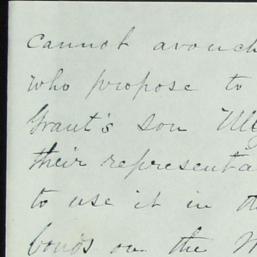 cannot avouch
who propose to
Grant's son Uly
their representa
to use it in th
bonds on the